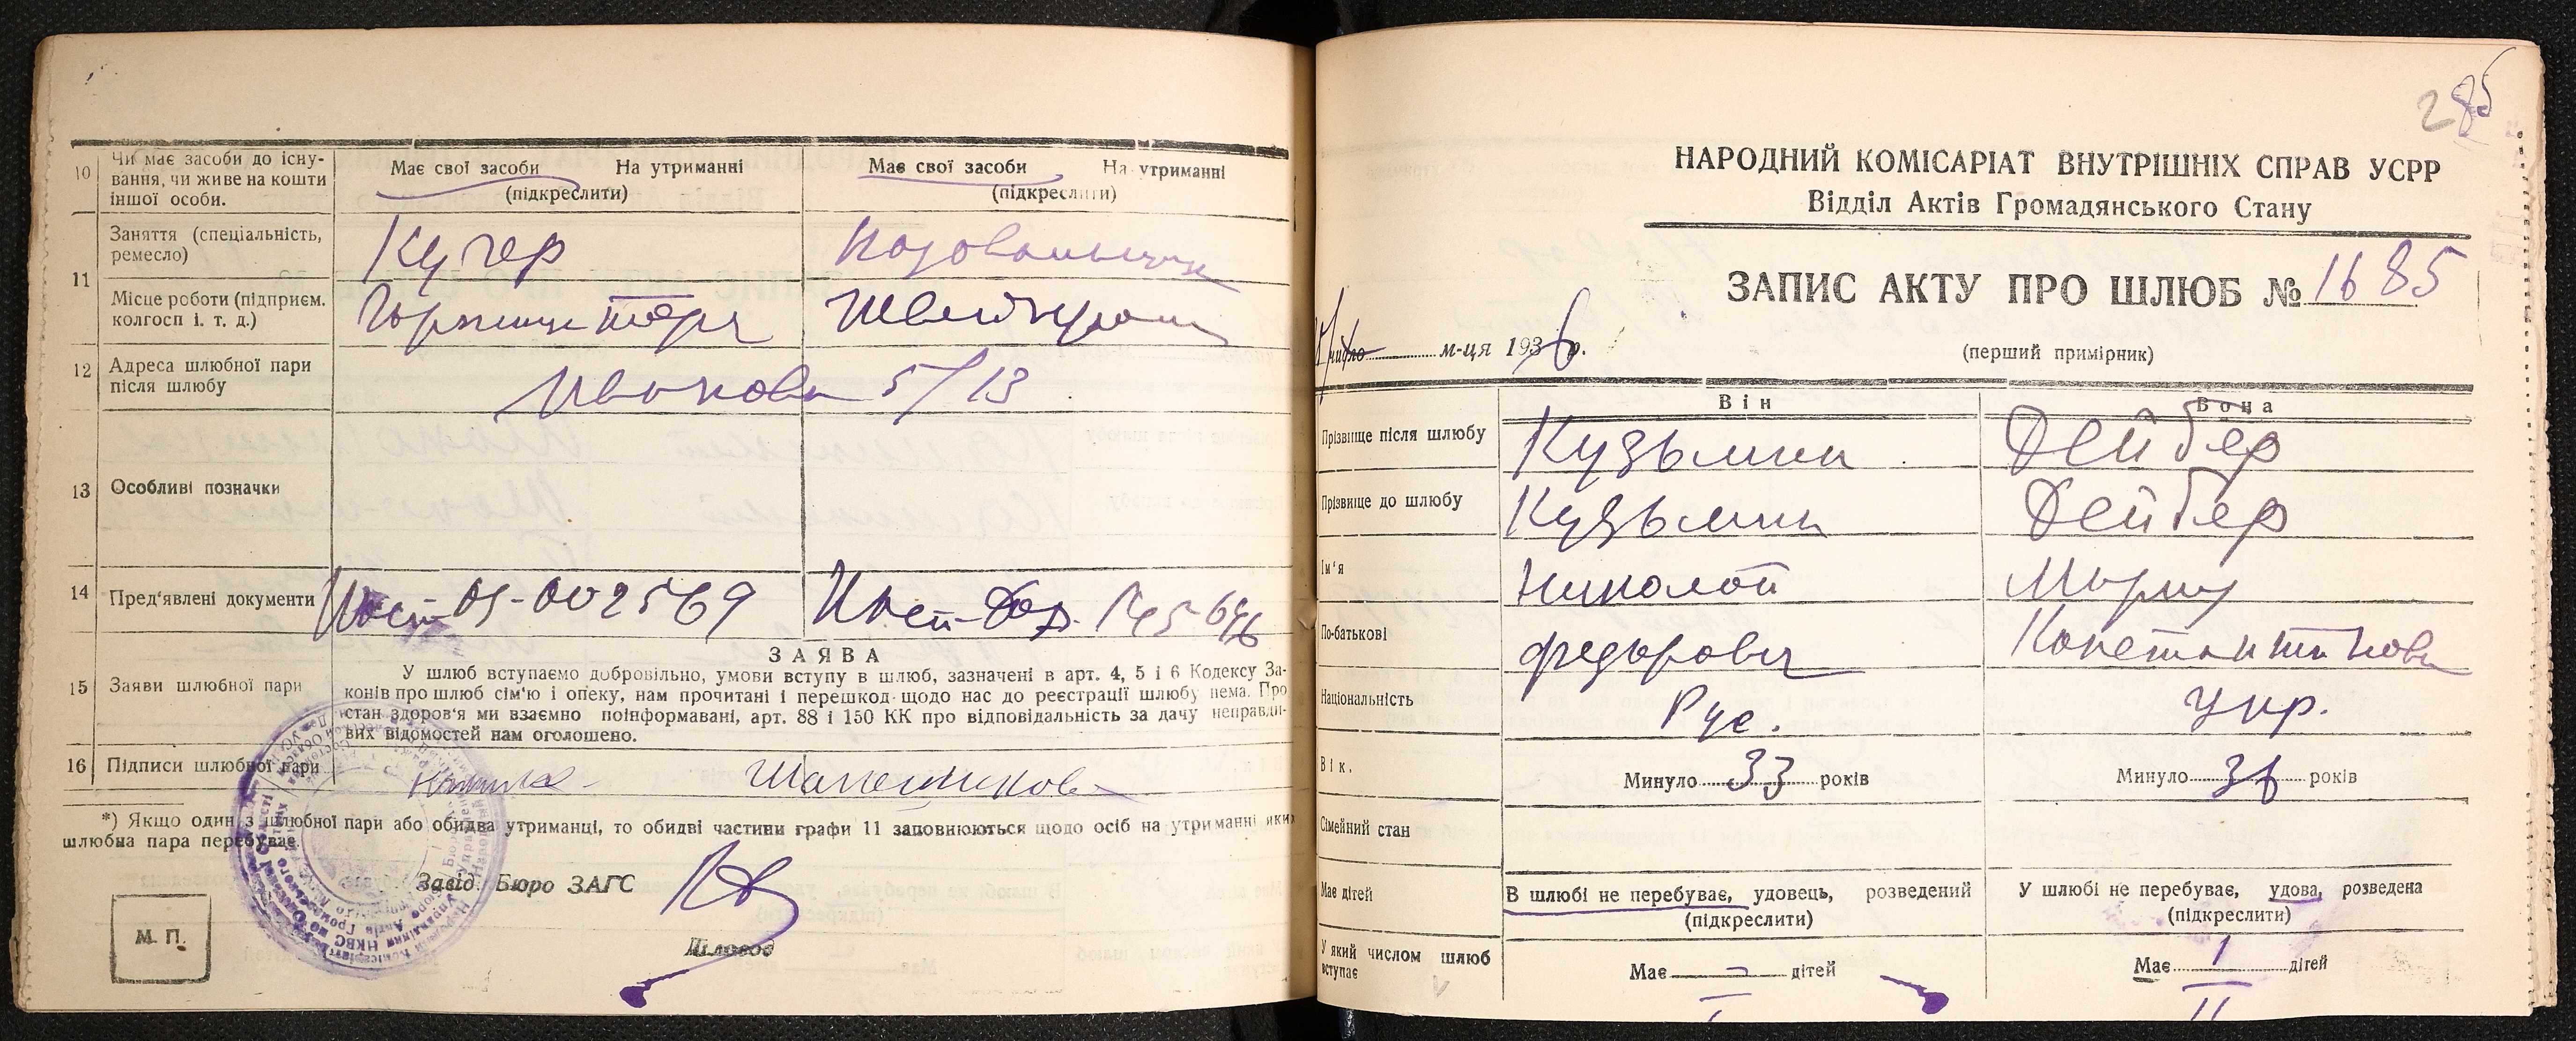 10 Чи має засоби до існу-
вання, чи живе на кошти
іншої особи.
Має свої засоби На утриманні
(підкреслити)
Має свої засоби На утриманні
(підкреслити)
11 Заняття (спеціальність,
ремесло)
Кучер
Місце роботи (підприєм.
колгосп і. т. д.)
12 Адреса шлюбної пари
після шлюбу
5/13
13 Особливі позначки
14 Пред'явлені документи
002569
15 Заяви шлюбної пари
ЗАЯВА
У шлюб вступаємо добровільно, умови вступу в шлюб, зазначені в арт. 4, 5 і 6 Кодексу За-
конів про шлюб сім'ю і опеку, нам прочитані і перешкод щодо нас до реєстрації шлюбу нема. Про
стан здоров'я ми взаємно поінформавані, арт. 88 і 150 КК про відповідальність за дачу неправди-
вих відомостей нам оголошено.
16 Підписи шлюбної пари
*) Якщо один з шлюбної пари або обидва утриманці, то обидві частини графи 11 заповнюються щодо осіб на утриманні яких
шлюбна пара перебуває.
Завід. Бюро ЗАГС
Діловод
М. П.
285
НАРОДНИЙ КОМІСАРІАТ ВНУТРІШНІХ СПРАВ УСРР
Відділ Актів Громадянського Стану
ЗАПИС АКТУ ПРО ШЛЮБ № 1685
м-ця 1936 р.
(перший примірник)
Він Вона
Прізвище після шлюбу Кузьмин Дейбер
Прізвище до шлюбу Кузьмин Дейбер
Ім'я Николай Мария
По-батькові Федорович Константинов
Національність Рус. Укр.
Вік. Минуло 33 років Минуло 36 років
Сімейний стан
Має дітей
В шлюбі не перебуває, удовець, розведений
(підкреслити)
У шлюбі не перебуває, удова, розведена
(підкреслити)
У який числом шлюб
вступає
Має - дітей
Має 1 дітей
I II